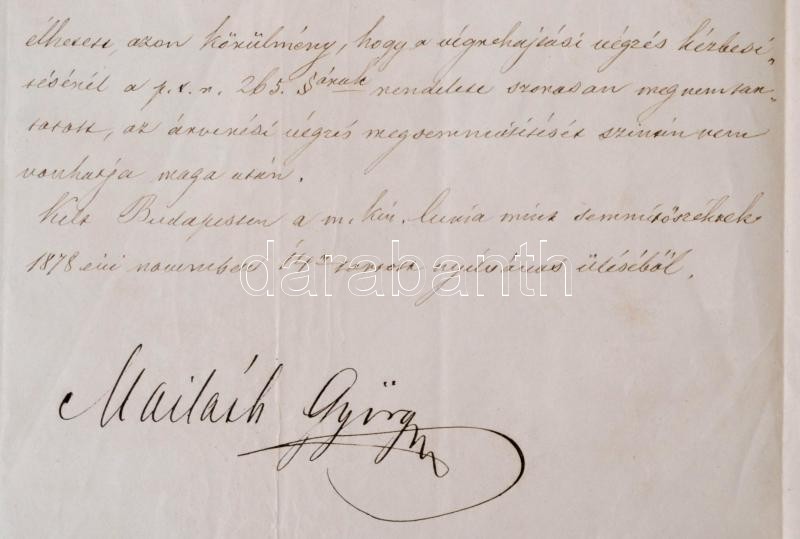 élhetett, azon körülmény, hogy a végrehajtási végzés kézbesi-
tésénél a p.t.r. 265. §ának rendelete szorosan meg nem tar-
tatott, az árverési végzés megsemmisitését szintén nem
vonhatja maga után.
Kelt Budapesten a m. kir. Curia mint semmitőszéknek
1878 évi november 14én tartott nyilvános üléséből.
darabanth
Mailáth György